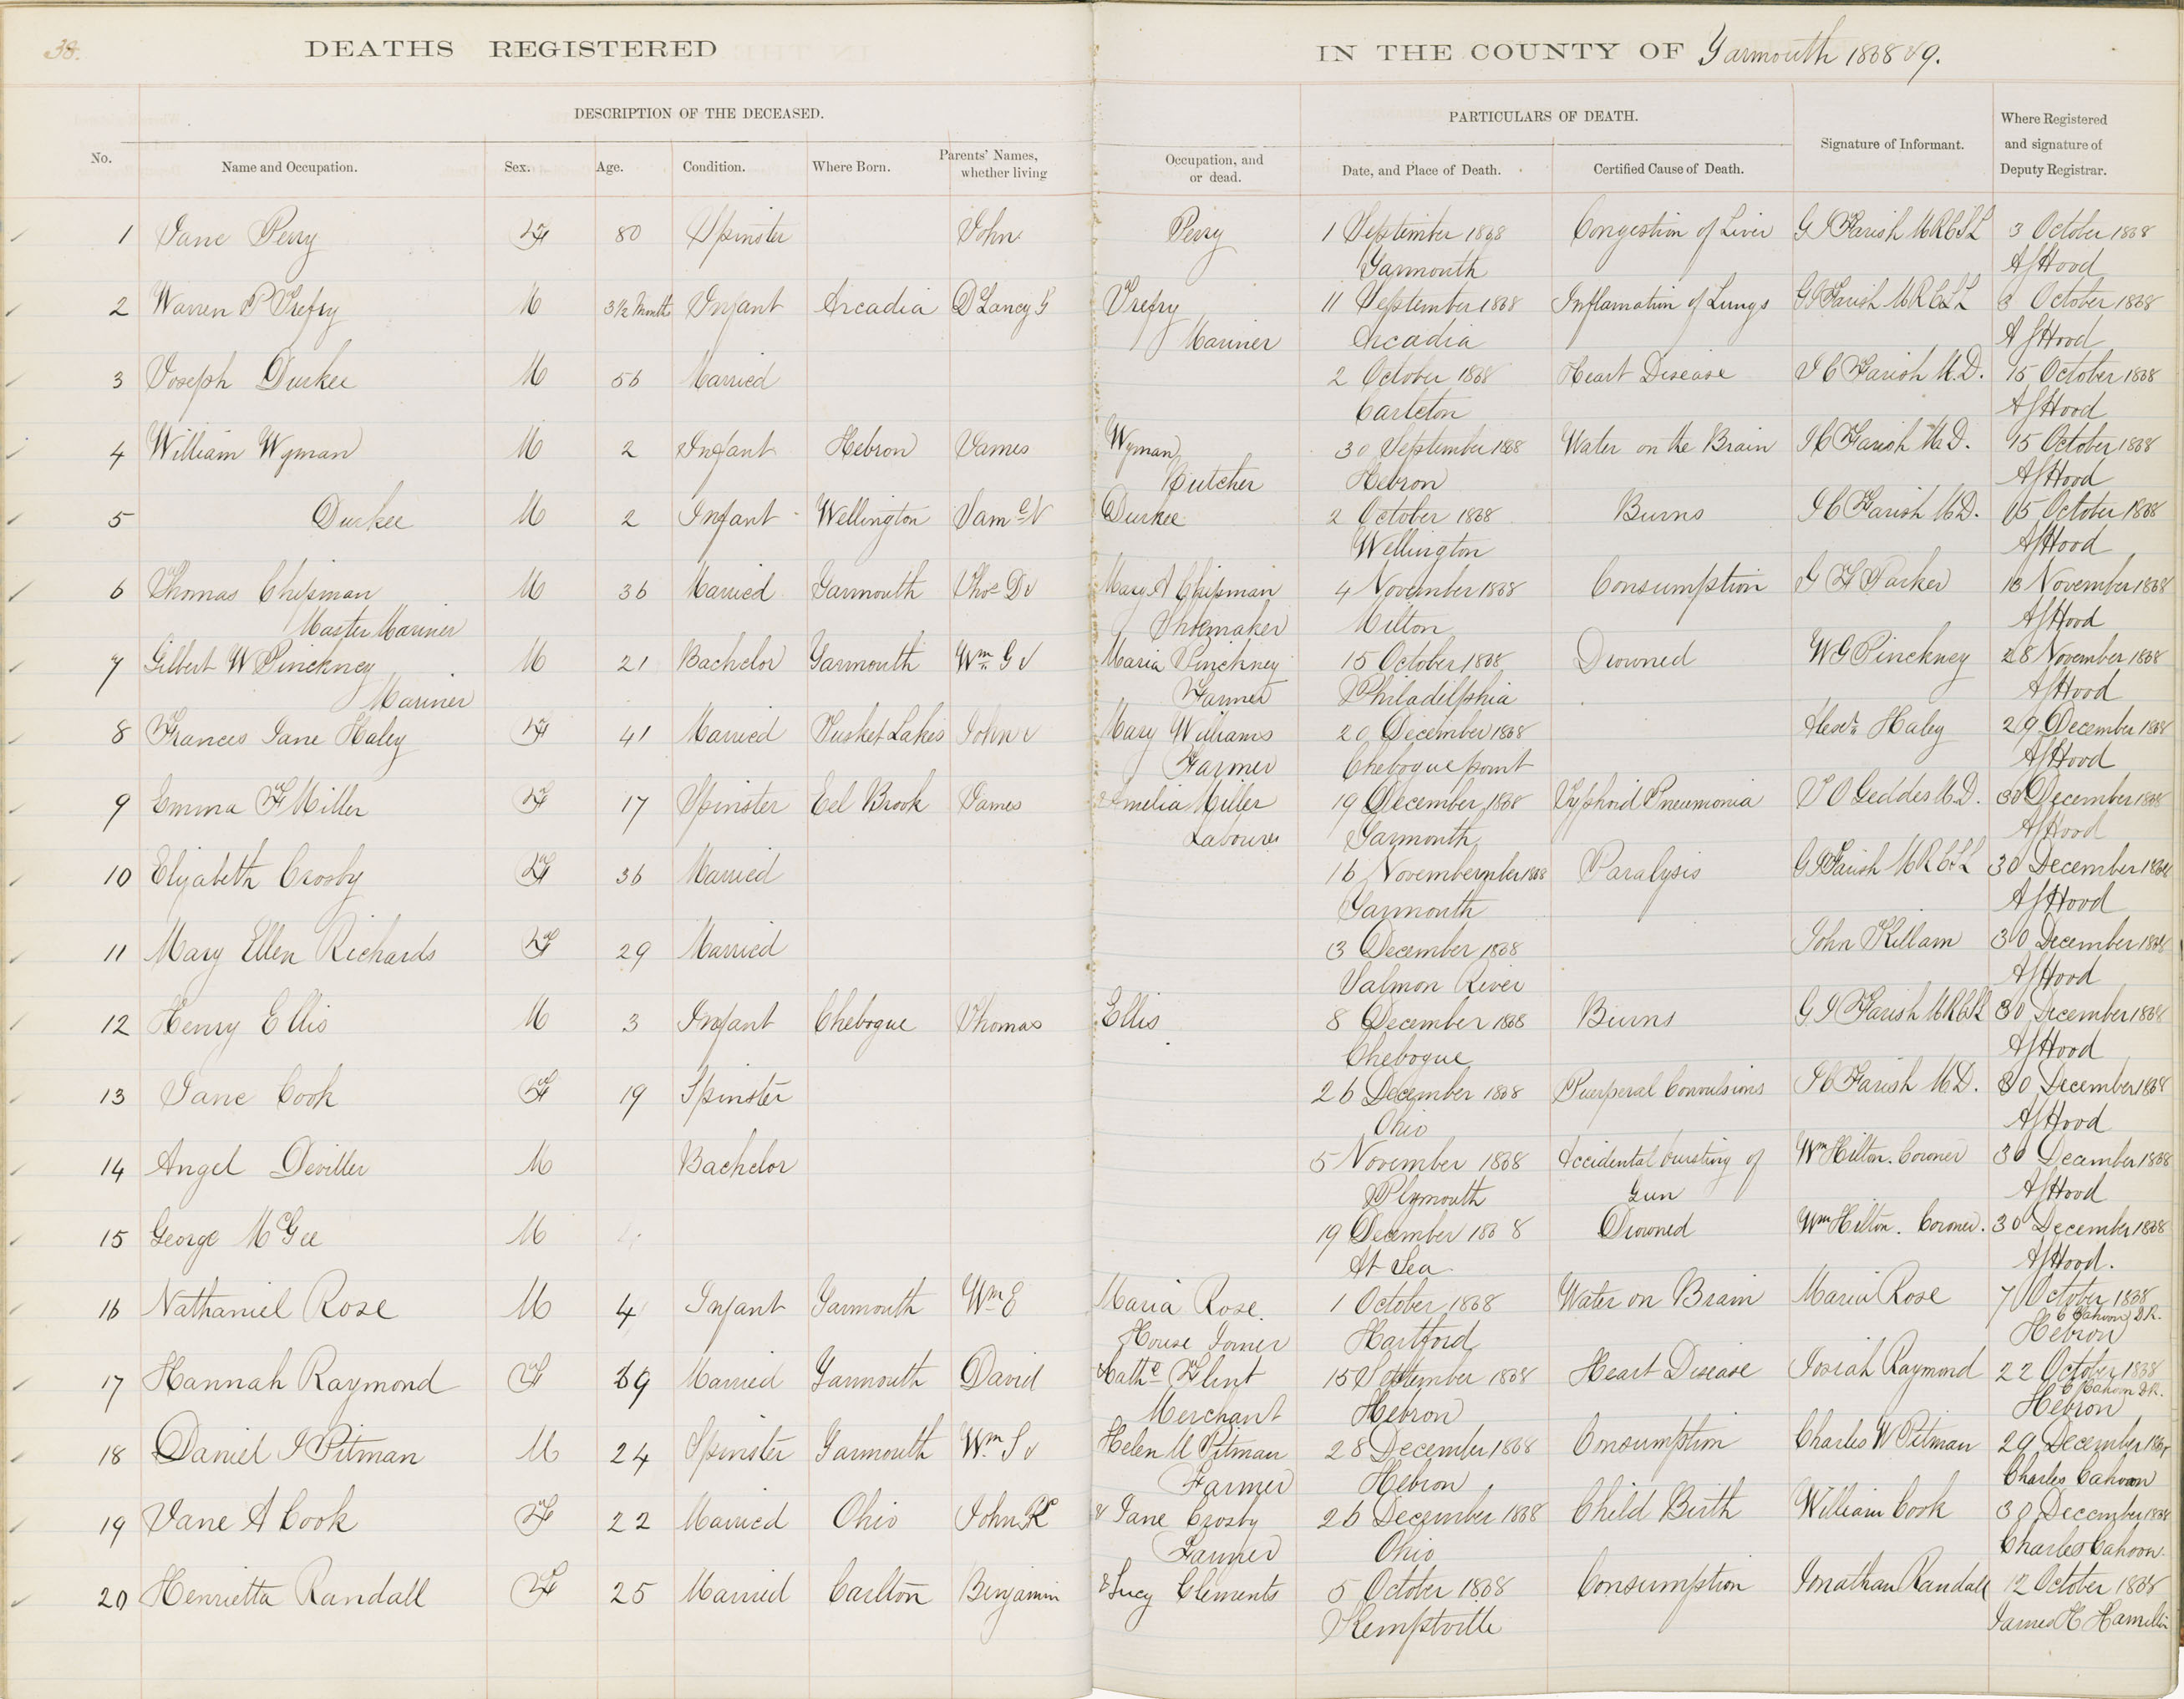 38.
DEATHS REGISTERED IN THE COUNTY OF Yarmouth 1868 & 9.
DESCRIPTION OF THE DECEASED. PARTICULARS OF DEATH.
No. Name and Occupation. Sex. Age. Condition. Where Born. Parents' Names, whether living Occupation, and or dead. Date, and Place of Death. Certified Cause of Death. Signature of Informant. Where Registered and signature of Deputy Registrar.
1 Jane Perry F 80 Spinster John Perry 1 September 1868 Congestion of Liver G J Farish M R C S L 3 October 1868
Yarmouth A J Hood
2 Warren P Trefry M 3 1/2 Month Infant Arcadia D Lancy G Trefry 11 September 1868 Inflamation of Lungs G J Farish M R C S L 3 October 1868
Mariner Arcadia A J Hood
3 Joseph Durkee M 56 Married 2 October 1868 Heart Disease J C Farish M.D. 15 October 1868
Carleton A J Hood
4 William Wyman M 2 Infant Hebron James Wyman 30 September 1868 Water on the Brain J C Farish M.D. 15 October 1868
Butcher Hebron A J Hood
5 Durkee M 2 Infant Wellington Sam e V Durkee 2 October 1868 Burns J C Farish M.D. 15 October 1868
Wellington A J Hood
6 Thomas Chipman M 36 Married Yarmouth Thos D v Mary A Chipman 4 November 1868 Consumption J H Parker 13 November 1868
Master Mariner Shoemaker Milton A J Hood
7 Gilbert W Pinckney M 21 Bachelor Yarmouth Wm. G v Maria Pinckney 15 October 1868 Drowned W G Pinckney 28 November 1868
Mariner Farmer Philadelphia A J Hood
8 Frances Jane Haley F 41 Married Tusket Lakes John v Mary Williams 20 December 1868 Alexdr Haley 29 December 1868
Farmer Chebogue point A J Hood
9 Emma F Miller F 17 Spinster Eel Brook James & Amelia Miller 19 December 1868 Typhoid Pneumonia J O Geddes M.D. 30 December 1868
Labourer Yarmouth A J Hood
10 Elizabeth Crosby F 36 Married 16 Novembermber 1868 Paralysis G J Farish M R C S L 30 December 1868
Yarmouth A J Hood
11 Mary Ellen Richards F 29 Married 13 December 1868 John Killam 30 December 1868
Salmon River A J Hood
12 Henry Ellis M 3 Infant Chebogue Thomas Ellis 8 December 1868 Burns G J Farish M R C S L 30 December 1868
Chebogue A J Hood
13 Jane Cook F 19 Spinster 26 December 1868 Puerperal Convulsions J C Farish M.D. 30 December 1868
Ohio A J Hood
14 Angel Deviller M Bachelor 5 November 1868 Accidental bursting of Wm Hilton. Coroner 30 December 1868
Plymouth Gun A J Hood
15 George McGee M 19 December 1868 Drowned Wm Hilton. Coroner. 30 December 1868
At Sea A J Hood.
16 Nathaniel Rose M 4 Infant Yarmouth Wm E Maria Rose. 1 October 1868 Water on Brain Maria Rose 7 October 1868
C Cahoon D.R.
House Joiner Hartford Hebron
17 Hannah Raymond F 39 Married Yarmouth David & Cathe Flint 15 September 1868 Heart Disease Josiah Raymond 22 October 1868
C Cahoon D.R.
Merchant Hebron Hebron
18 Daniel J Pitman M 24 Spinster Yarmouth Wm. S v Helen M Pitman 28 December 1868 Consumption Charles W Pitman 29 December 1868
Farmer Hebron Charles Cahoon
19 Jane A Cook F 22 Married Ohio John R & Jane Crosby 26 December 1868 Child Birth William Cook 30 December 1868
Farmer Ohio Charles Cahoon.
20 Henrietta Randall F 25 Married Carlton Benjamin & Lucy Clements 5 October 1868 Consumption Jonathan Randall 12 October 1868
Kemptville James H Hamilton